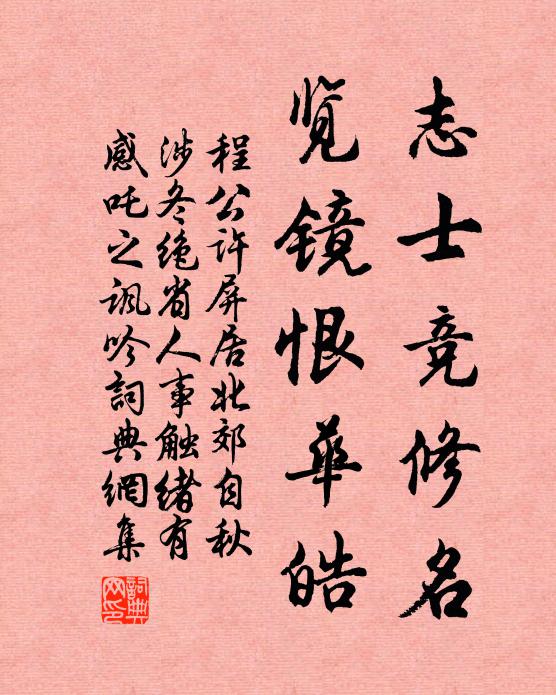 志士竞修名
览镜恨华皓
程公许屏居北郊自秋
涉冬绝省人事触绪有
感吒之讽吟詞典網集
詞典網印